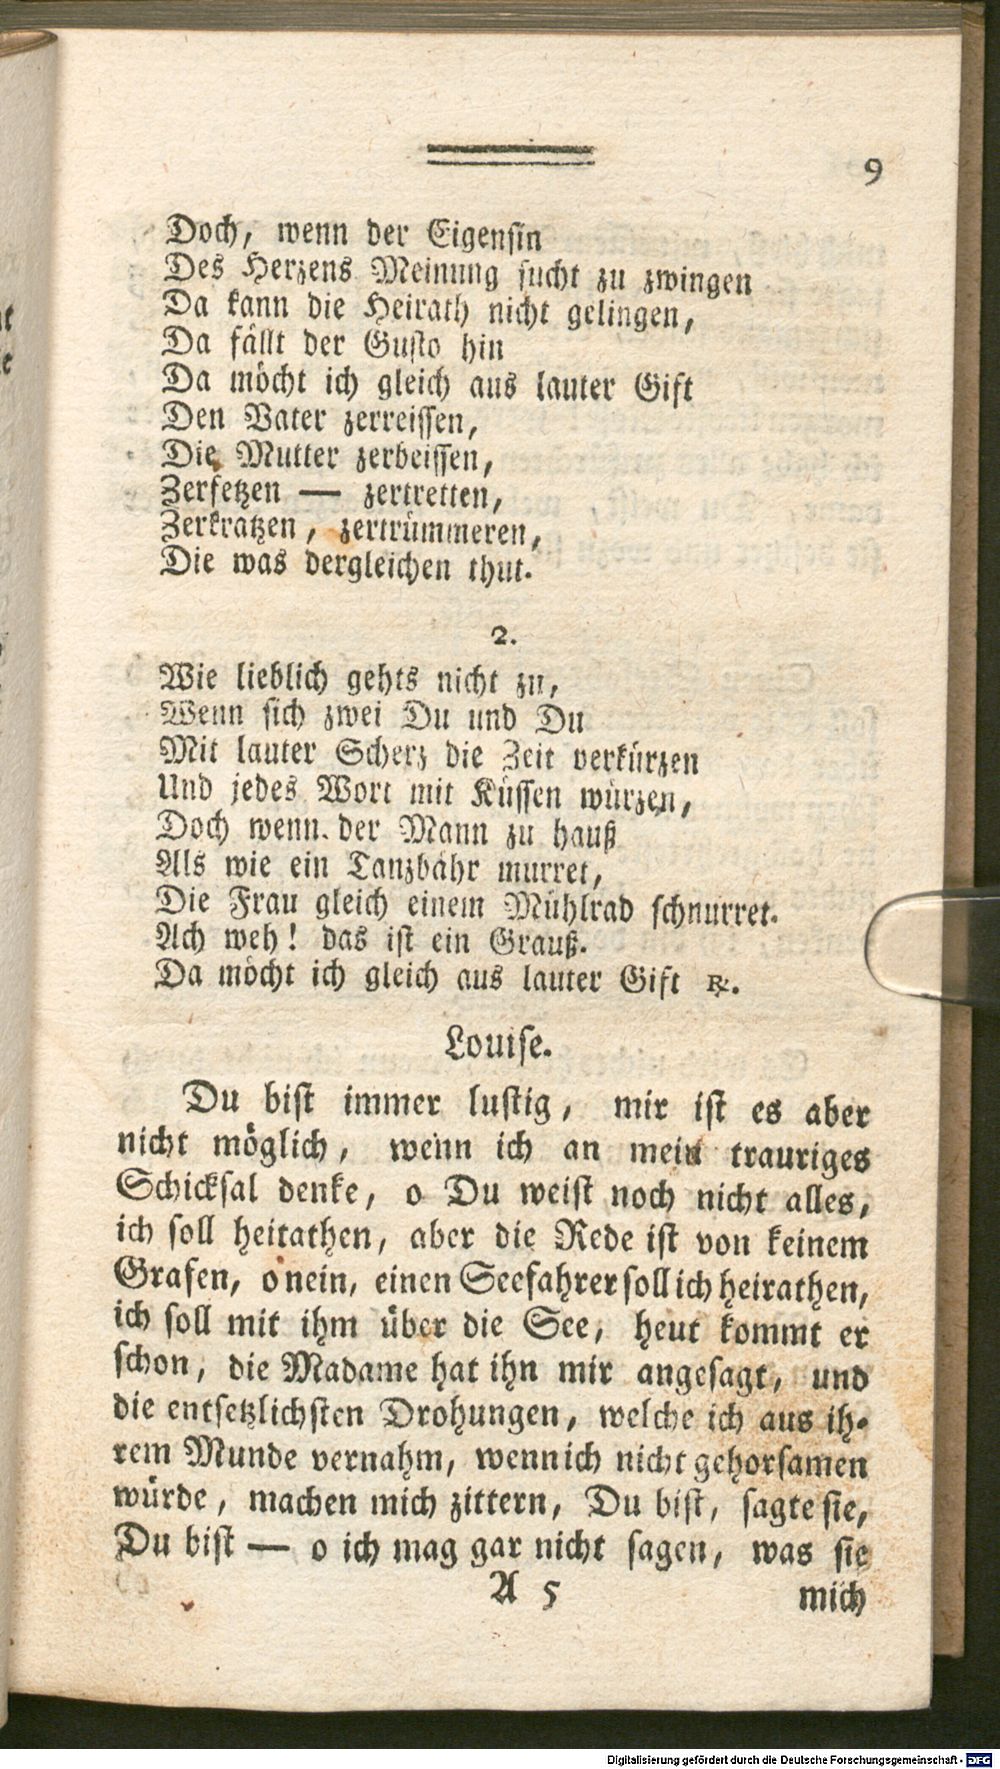 9
Doch, wenn der Eigensin
Des Herzens Meinung sucht zu zwingen
Da kann die Heirath nicht gelingen,
Da fällt der Gusto hin
Da möcht ich gleich aus lauter Gift
Den Vater zerreissen,
Die Mutter zerbeissen,
Zerfetzen — zertretten,
Zerkratzen, zertrümmeren,
Die was dergleichen thut.
2.
Wie lieblich gehts nicht zu,
Wenn sich zwei Du und Du
Mit lauter Scherz die Zeit verkürzen
Und jedes Wort mit Küssen würzen,
Doch wenn der Mann zu hauß
Als wie ein Tanzbähr murret,
Die Frau gleich einem Mühlrad schnurret.
Ach weh! das ist ein Grauß.
Da möcht ich gleich aus lauter Gift ꝛc.
Louise.
Du bist immer lustig, mir ist es aber
nicht möglich, wenn ich an mein trauriges
Schicksal denke, o Du weist noch nicht alles,
ich soll heirathen, aber die Rede ist von keinem
Grafen, o nein, einen Seefahrer soll ich heirathen,
ich soll mit ihm über die See, heut kommt er
schon, die Madame hat ihn mir angesagt, und
die entsetzlichsten Drohungen, welche ich aus ih-
rem Munde vernahm, wenn ich nicht gehorsamen
würde, machen mich zittern, Du bist, sagte sie,
Du bist — o ich mag gar nicht sagen, was sie
A 5 mich
Digitalisierung gefördert durch die Deutsche Forschungsgemeinschaft - DFG